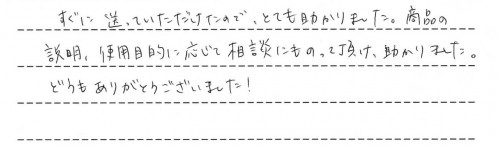 すぐに送っていただけたので、とても助かりました。商品の
説明、使用目的に応じて相談にものって頂け、助かりました。
どうもありがとうございました!